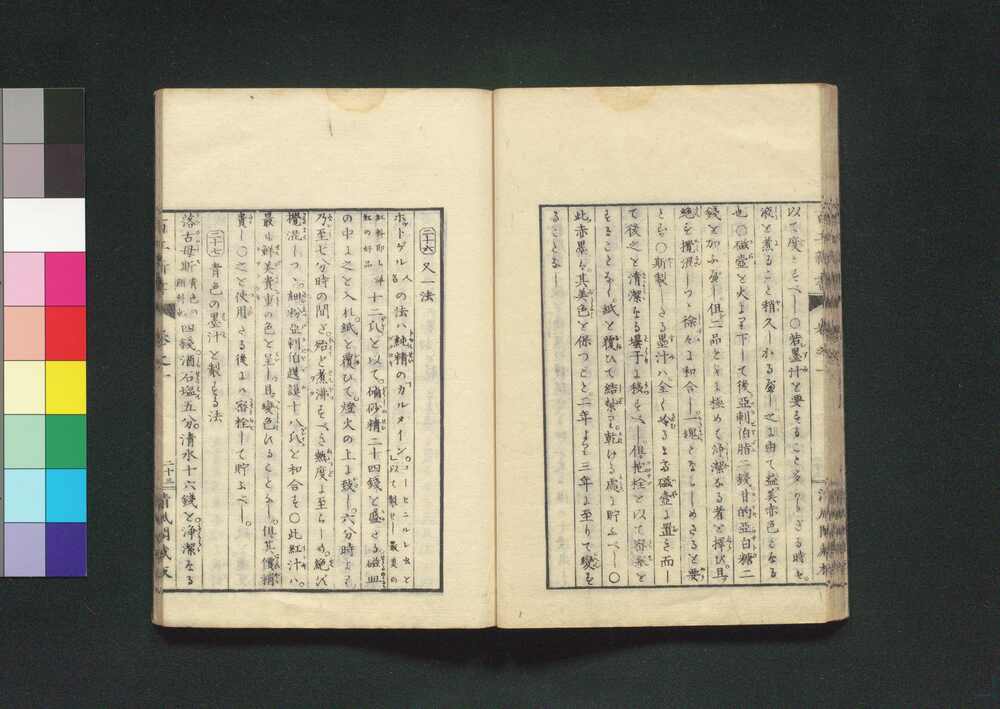 以て度とすべし○若墨汁と要すること多からざる時は
液と煮ること稍久しかるべし之に由て益美赤色となる
也○磁壺を火より下して後亞剌伯脂二錢甘的亞白糖二
錢と加ふべし俱二品ともに極めて浄潔なる者を擇び且
絶へず攪混しつゝ徐々に和合し一塊とならしめざるを要
とす○斯製したる墨汁ハ全く冷るまで磁壺に置き而し
て後之を清潔なる壜子に移すべし俱桅栓を以て密塞と
することなく紙を覆ひて結紮し乾ける處に貯ふべし○
此赤墨ハ其美色を保つこと二年より三年に至りて變ず
ることなし
二十六 又一法
ホットゲル人の法ハ純精のカルメイン コーヒニルレを以て製せし最美の紅の好品
十二氏を以て硇砂精二十四錢を盛たる磁皿
の中に之を入れ紙を覆ひて燈火の上に致し六分時より
乃至七分時の間殆ど煮沸すべき熱度に至らしめ絶へず
攪混しつゝ細粉亞剌伯護謨十八氏を和合す○此紅汁ハ
最も鮮美貴重の色を呈し且變色ひることなし俱其價稍
貴し○之を使用する後にハ密栓して貯ふべし
二十七 青色の墨汁を製する法
洛古母斯 青色の顔料 四錢酒石塩五分清水十六錢を浄潔なる
卷之一
二十三